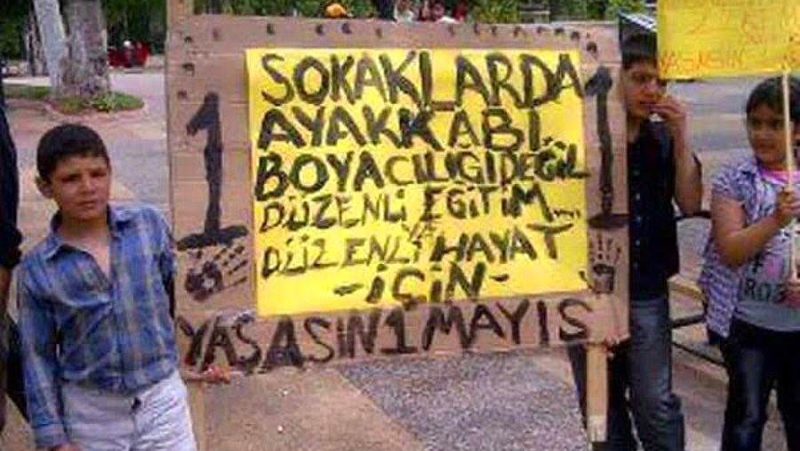 SOKAKLARDA
AYAKKABI
BOYACILIGI DEĞİL
DÜZENLİ EĞİTİM...
VE
DÜZENLİ HAYAT
-İÇİN-
1 1
YAŞASIN 1 MAYIS
YASASIN